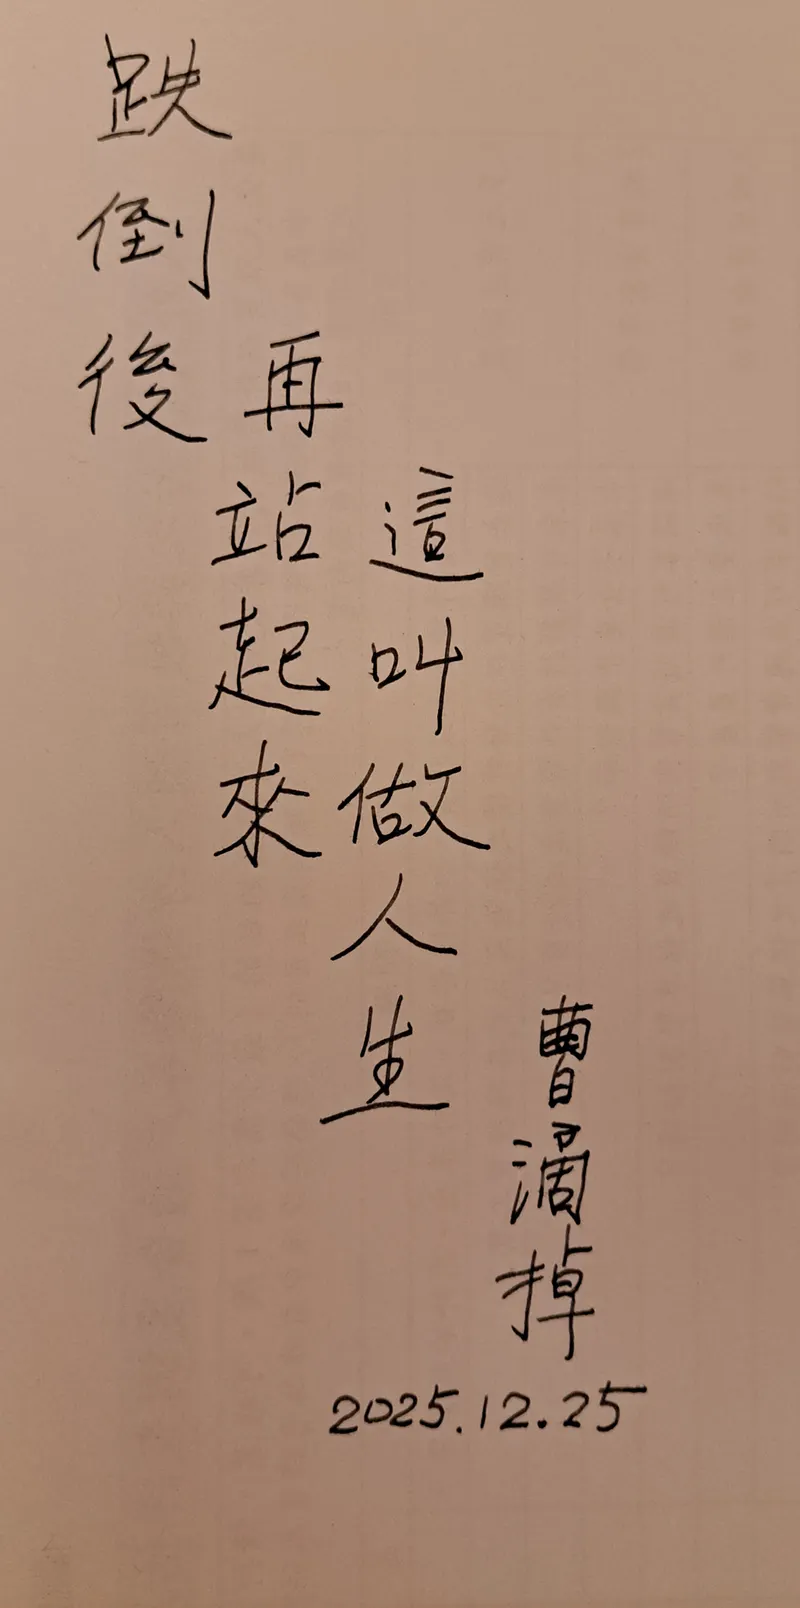 跌倒後
再站起來
這叫做人生
曹涌掉
2025.12.25